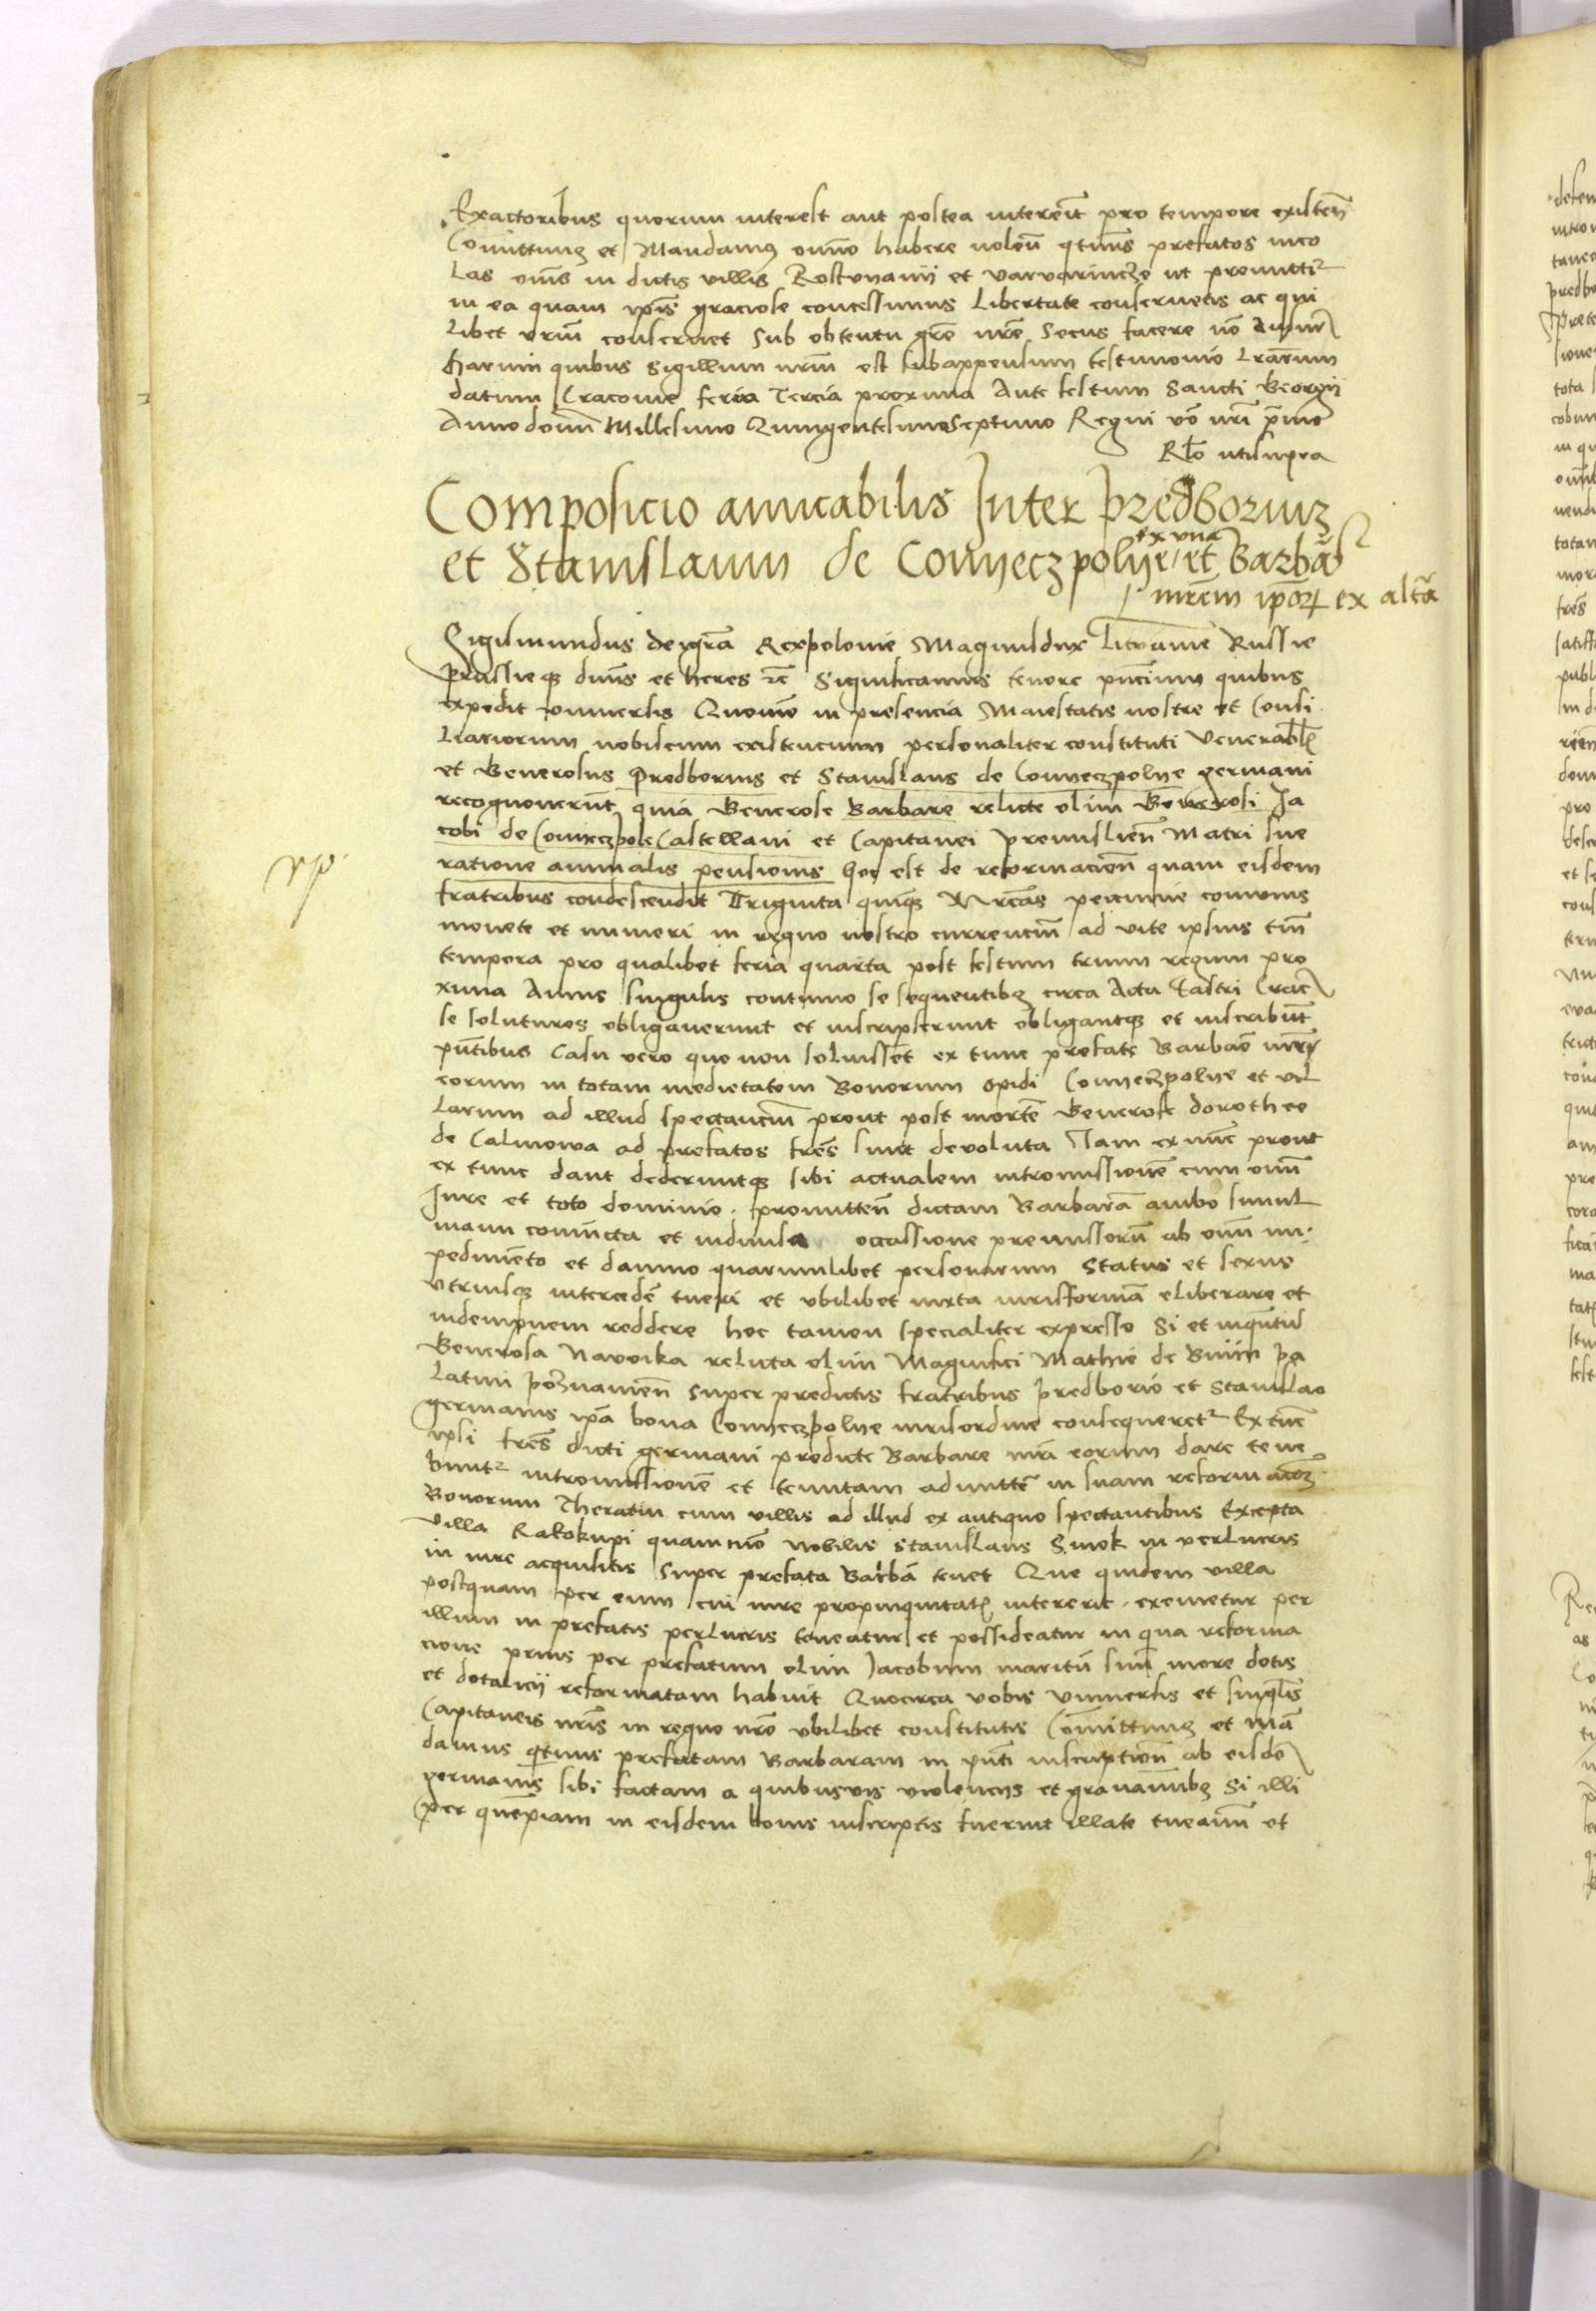 Exactoribus quorum interest aut postea intererit pro tempore existen̄
Comittimus et Mandamus omnino habere volen̄ qtinus prefatos inco
las om̄s in dictis villis Rosthnanij et varvarincze ut premittit᷑
in ea quam ip̄is graciose concessimus libertate conservetis ac qui
libet vr̄m conservet sub obtentu gre nr̄e Secus facere no
harum quibus Sigillum nr̄m est subappensum testimonio lrarum
datum Cracovie feria Tercia proxima Ante festum Sancti Georgij
Anno domī Millesimo Quingentesimoseptimo Regni vō nr̄i prīmo
Rlo utsupra
Composicio amicabilis Inter Predborium
et Stanislaum de Connyeczpolye ex una et Barbā
mrem ip̄or̄ ex altā
Sigismundus dei grā Rex polonie Magnusdux litvanie Russie
prussieq̄ dn̄us et heres ꝛc Significamus tenore pn̄cium quibus
expedit vniversis Quomo in presencia Maiestatis nostre et Consi
liariorum nobiscum existencium personaliter constituti Venerabl̄
et Generosus Predborius et Stanislaus de Connyeczpolye germani
recognoverūt quia Generose Barbare relicte olim Generosi Ja
cobi de Connyeczpole Castellani et Capitanei premislien̄ Matri sue
ratione annualis pensionis hoc est de reformacion̄ quam eisdem
fratribus condescendit Triginta quiq̄ Mrcas pecunie comunis
monete et numeri in regno nostro currencium ad vite ipsius tm̄
tempora pro qualibet feria quarta post festum trium regum pro
xima Annis singulis continuo se sequentibꝫ circa Acta Castri Crac
se soluturos obligaverunt et inscripserunt obligantq̄ et inscribunt
pn̄tibus Casu vero quo non soluissēt ex tunc prefate Barbāe mri
eorum in totam medietatem Bonorum opidi Connyeczpolye et vil
larum ad illud spectancium prout post mortē Generose dorothee
de Calinowa ad prefatos frēs sunt devoluta Jam ex nūc prout
ex tunc dant dederuntq̄ sibi actualem intromissionē cum omī
Jure et toto dominio. promitten̄ dictam Barbarā ambo simul
manu coniūcta et indivisa occassione premissorum ab omī im
pedimēto et damno quarumlibet personarum status et sexus
vtriusq̄ intercedē tueri et vbilibet iuxta iurisformā eliberare et
indempnem reddere hoc tamen specialiter expresso Si et inqn̄tū
Generosa Navoika relicta olim Magnifici Mathie de Bnin pa
latini poznanien̄ super predictis fratribus predborio et Stanislao
germanis ip̄a bona Connyeczpolye iurisordine consequeret᷑ Ex tūc
ipsi frēs dicti germani predicte Barbare mri eorum dare tene
bunt᷑ intromissionē et tenutam admittē in suam reformacoē
Bonorum Theratin cum villis ad illud ex antiquo spectantibus Excepta
villa Rakokupi quam Nobilis Stanislaus Smok in perlucris
in iure acquisitis super prefata Barbā tenet Que quidem villa
postquam per eum cui iure propinquitatis intererit. exemetur per
illum in prefatis perlucris teneatur et possideatur in qua reforma
cione prius per prefatum olim Jacobum maritū suū more dotis
et dotalicij reformatam habuit Quocirca vobis vniversis et singulis
Capitaneis nr̄is in regno nr̄o vbilibet constitutis Cōmittimus et mā
damus qtinus prefatam Barbaram in pn̄ti inscription̄ ab eisdē
germanis sibi factam a quibusvis violencijs et gravaminibꝫ Si illi
per quēpiam in eisdem bonis inscriptis fuerint illate tueamini et